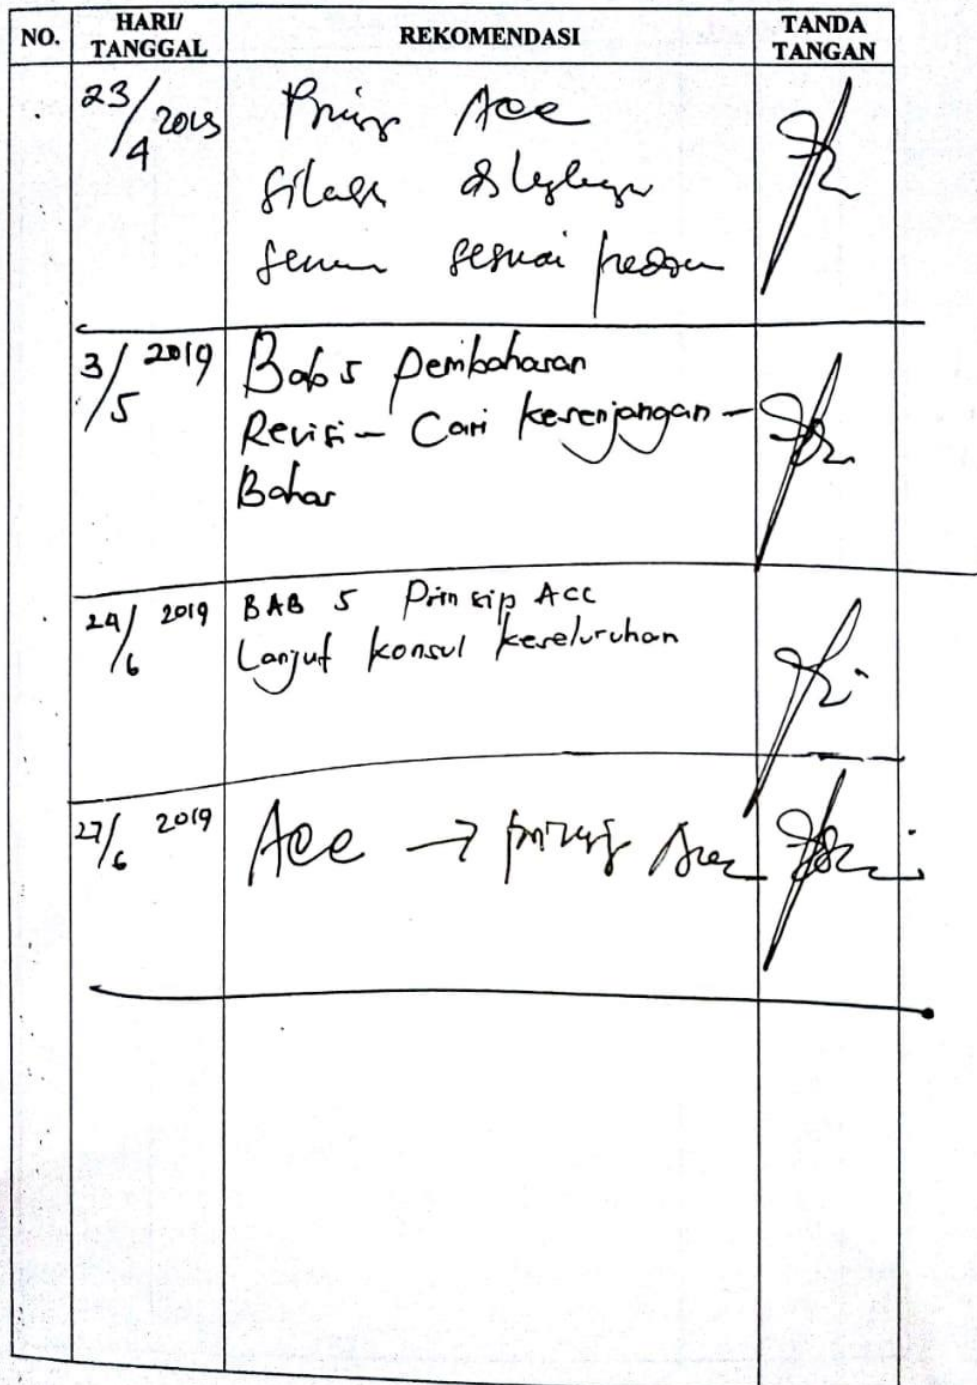 NO. HARI/ TANGGAL REKOMENDASI TANDA TANGAN
23/4 2019 Prinsip Acc
Silahk dilengkapi
sesuai
3/5 2019 Bab 5 pembahasan
Revisi - Cari kesenjangan -
Bahas
24/6 2019 BAB 5 Prinsip ACC
Lanjut konsul keseluruhan
27/6 2019 Acc → prinsip